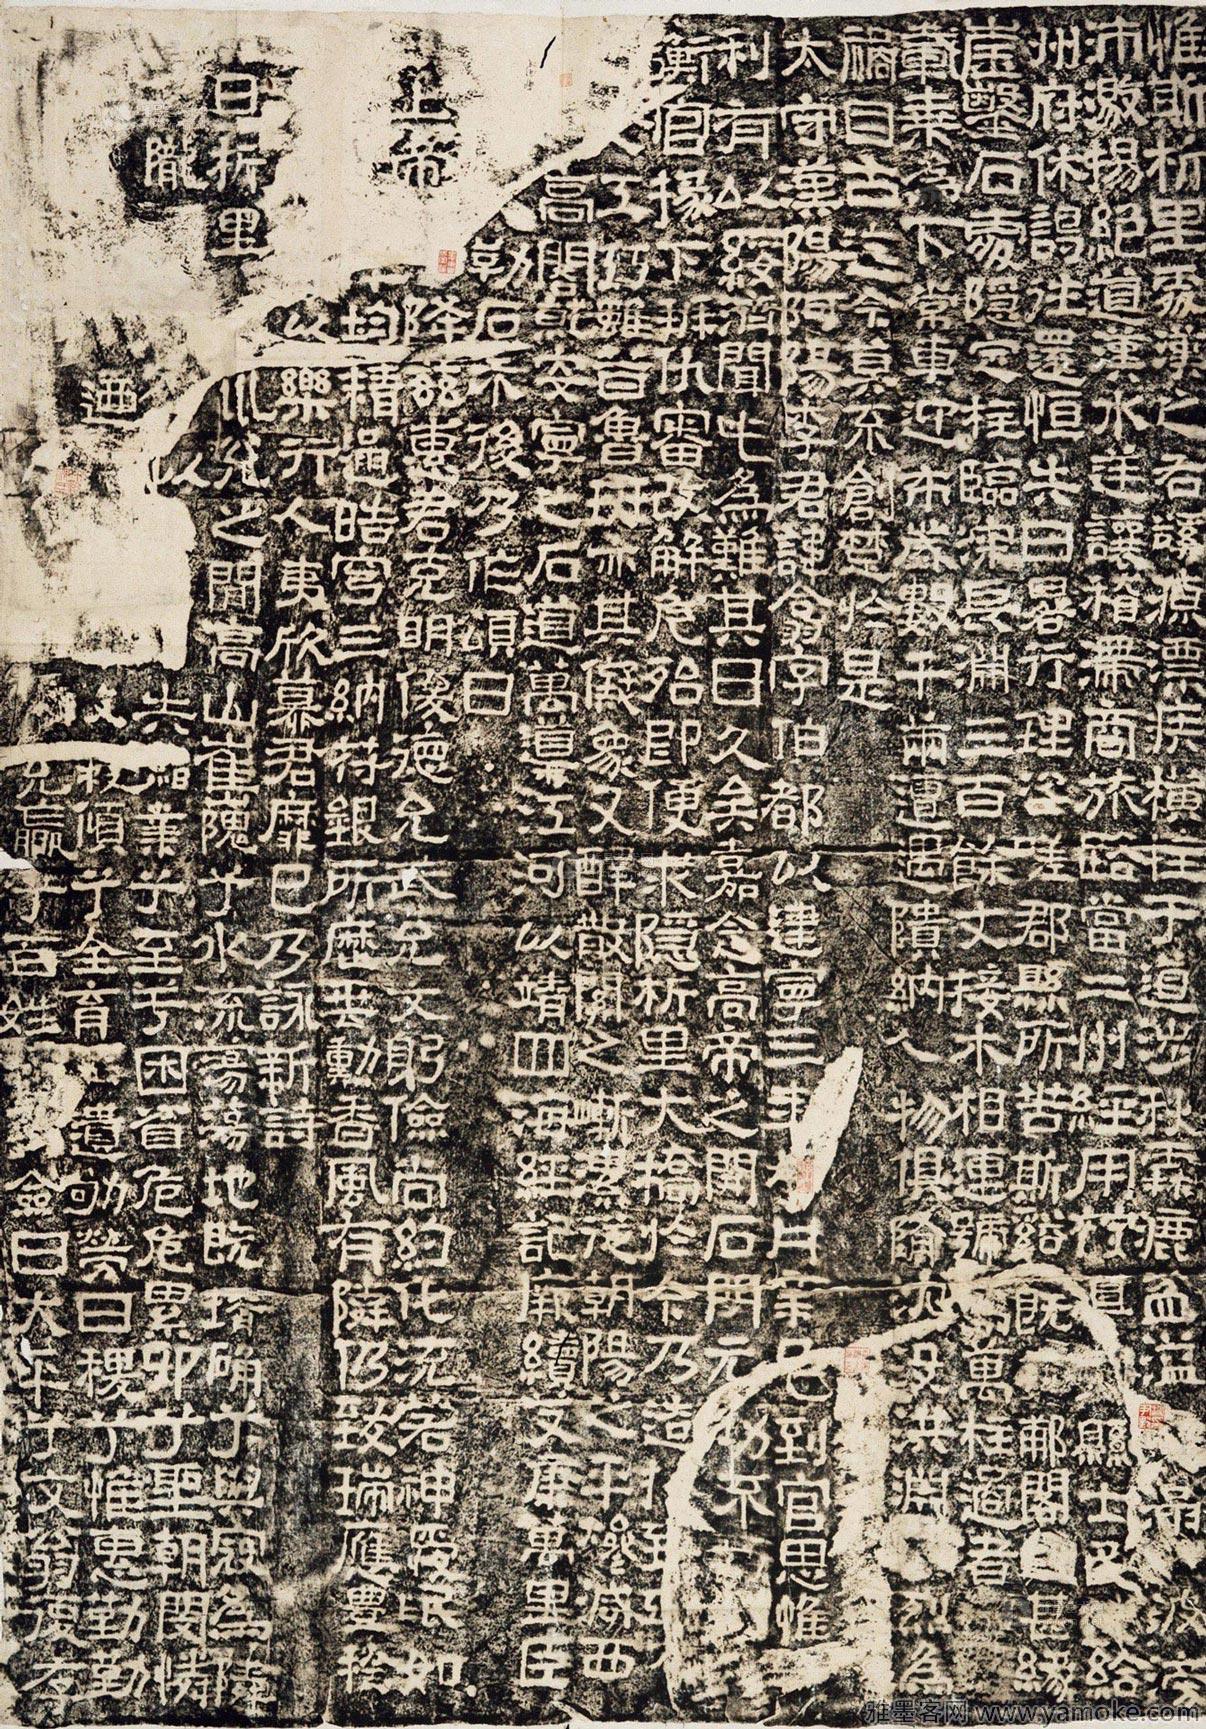 惟斯析里處漢之右谿源漂疾橫柱于道涉秋霖漉盆溢濤波滂
沛激揚絕道漢水逆讓稽滯商旅路當二州經用衿沮縣士民或給
州府休謁往還恒失日晷行理咨嗟郡縣所苦斯谿既郙閣甚緣
崖鑿石處隱定柱臨深長淵三百餘丈接木相連號為萬柱過者
載乘為下常車迎布歲數千兩遭遇隤納人物俱隋沉沒洪淵烈為
禍自古迄今莫不創楚於是
太守漢陽阿陽李君諱翕字伯都以建寧三年月辛巳到官思惟
利有以綏濟聞此為難其日久矣嘉念高帝之開石門元功不朽
衡官掾下辨仇審改解危殆即便求隱析里大橋於今乃造
工巧雖昔魯班亦其儗象又醳散關之嶄漯從朝陽之平慘減西
高閣就安寧之石道禹導江河以靖四海經記厥續艾康萬里臣
勒石示後乃作頌曰
上帝降茲惠君克明俊德允武允文躬儉尚約化流若神愛氓如
均精通皓穹三納符銀所歷垂勳香風有隣仍致瑞應豐稔
以樂行人夷欣慕君靡已乃詠新詩
曰析里兌之間高山崔隗兮水流蕩蕩地既塉确兮與寇為隣
隴以失緒業兮至于困貧危危累卵兮聖朝閔憐
艾救傾兮全育遺劬勞日稷兮惟惠勤勤
充贏兮百姓僉曰太平兮文翁復存
雅墨客网 www.yamoke.com